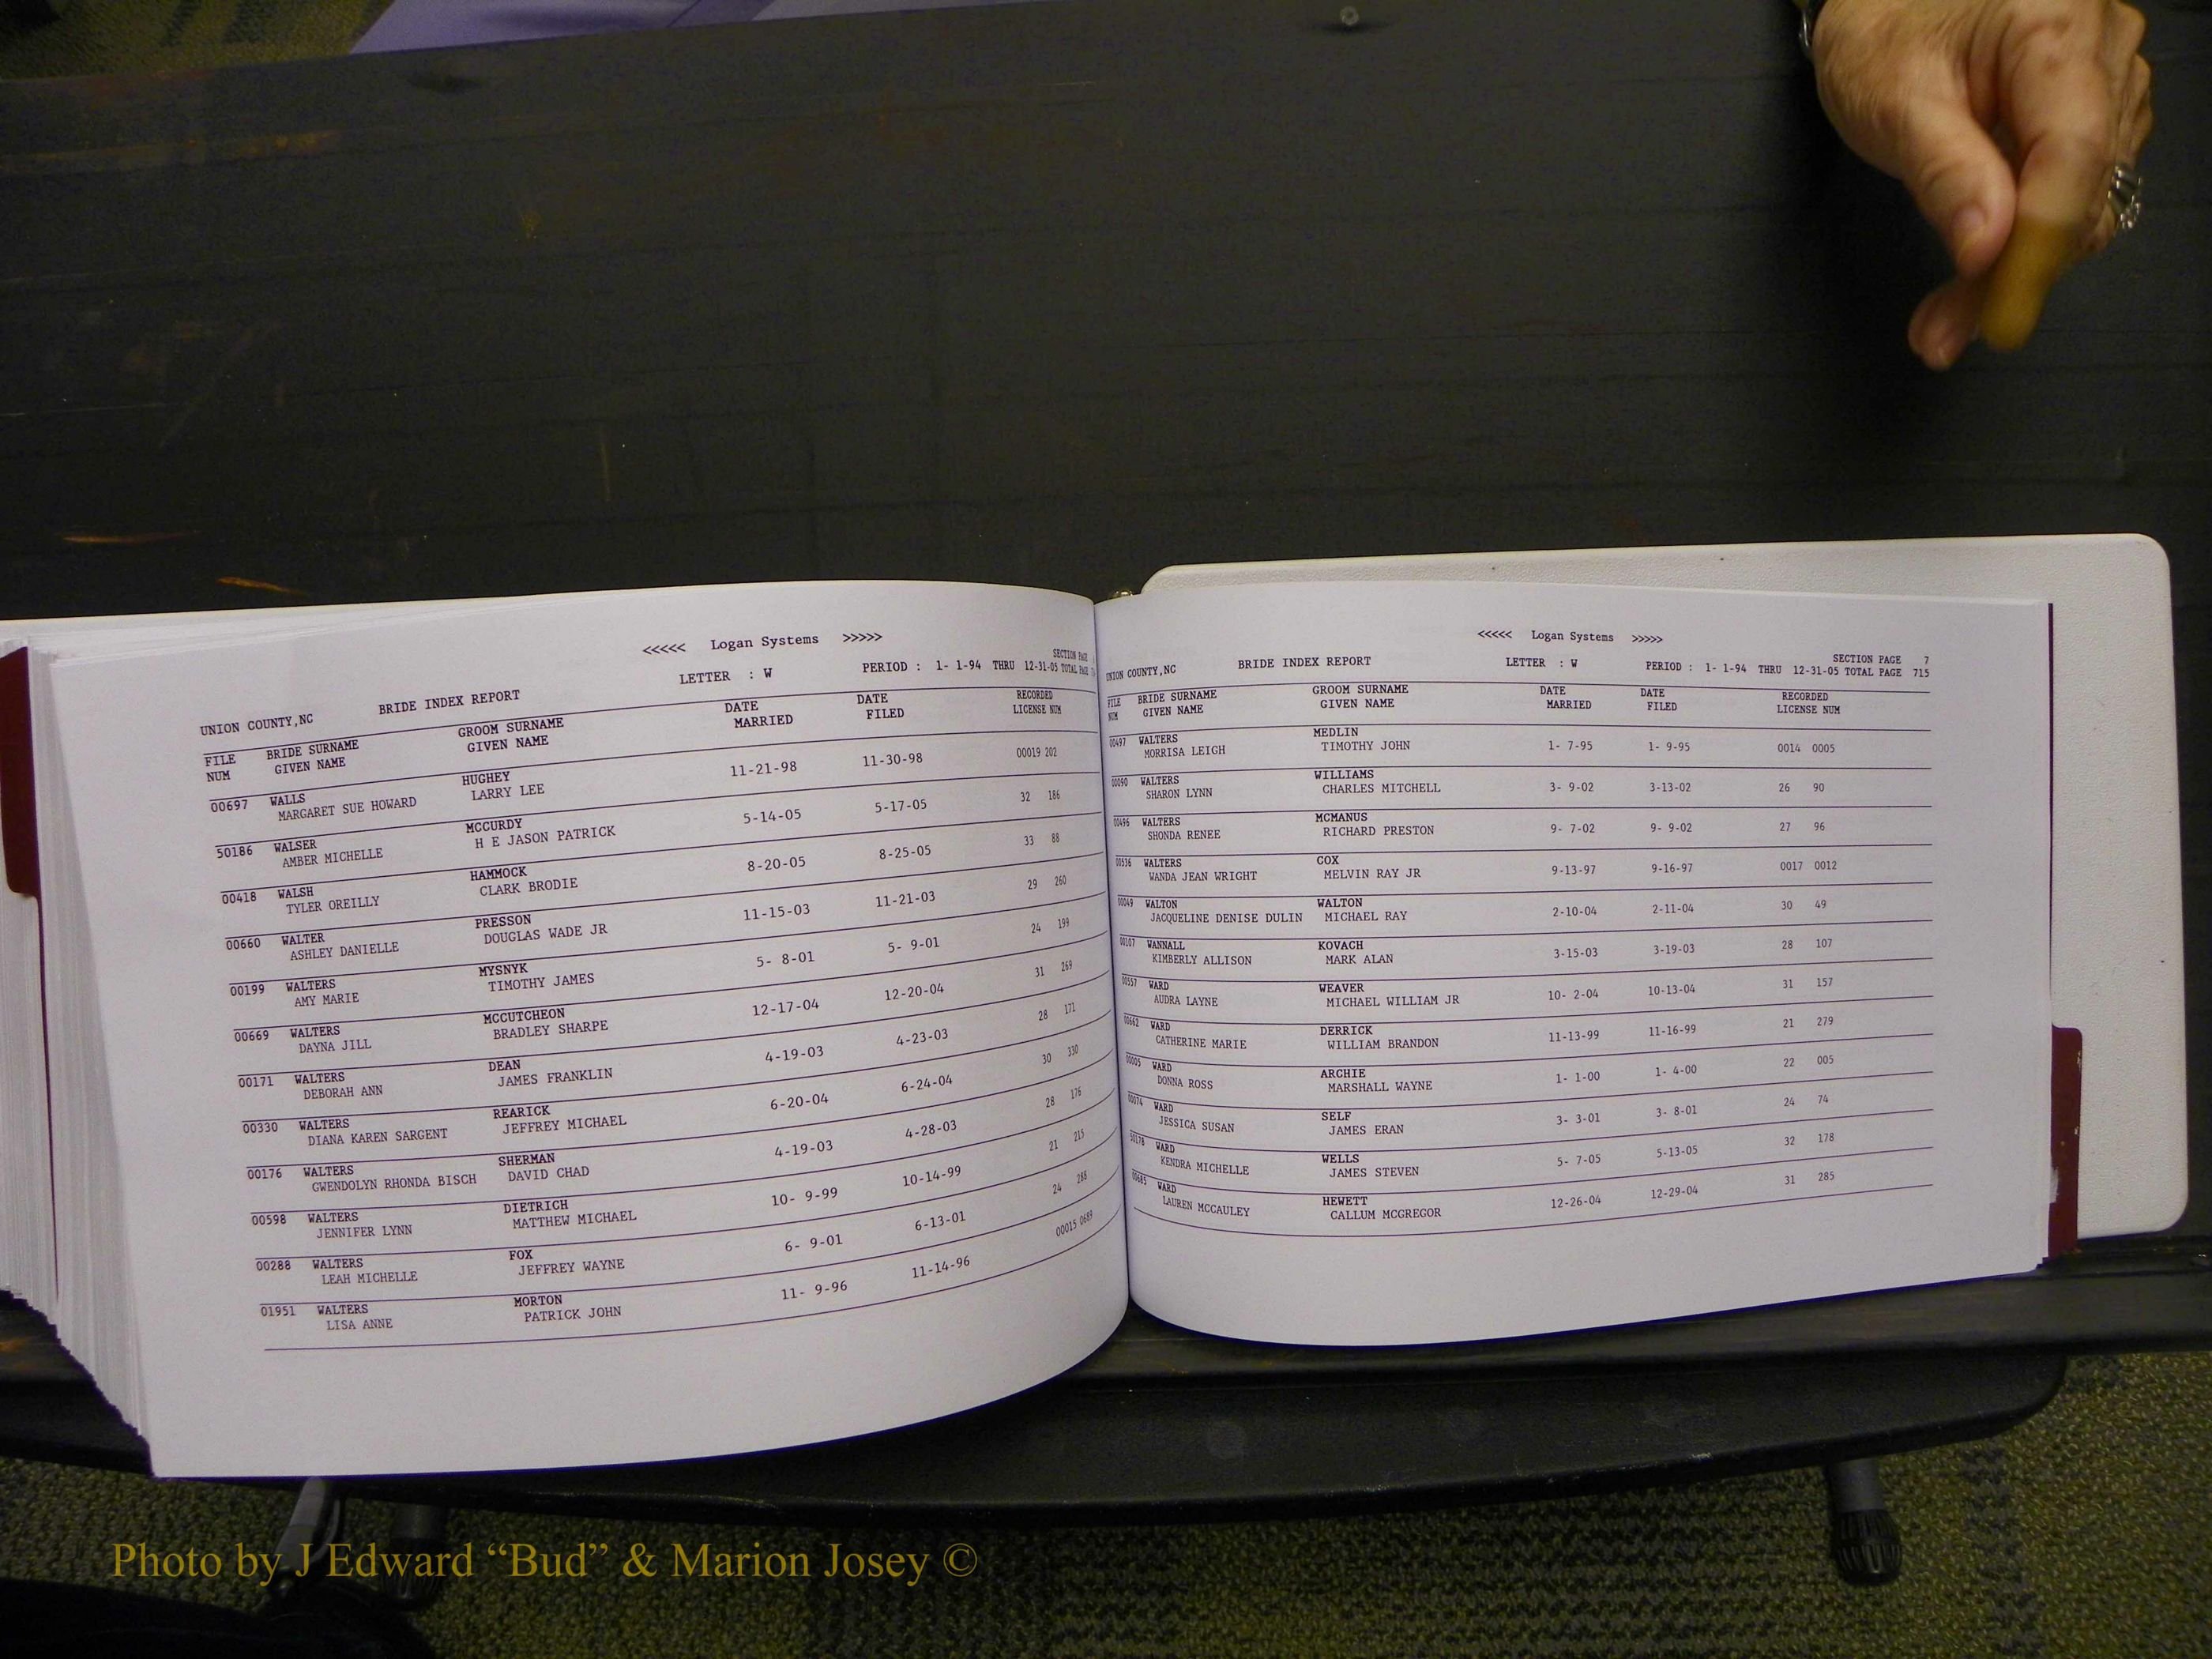 <<<<< Logan Systems >>>>>
SECTION PAGE
UNION COUNTY,NC BRIDE INDEX REPORT LETTER : W PERIOD : 1- 1-94 THRU 12-31-05 TOTAL PAGE
FILE BRIDE SURNAME GROOM SURNAME DATE DATE RECORDED
NUM GIVEN NAME GIVEN NAME MARRIED FILED LICENSE NUM
00697 WALLS HUGHEY 11-21-98 11-30-98 00019 202
MARGARET SUE HOWARD LARRY LEE
50186 WALSER MCCURDY 5-14-05 5-17-05 32 186
AMBER MICHELLE H E JASON PATRICK
00418 WALSH HAMMOCK 8-20-05 8-25-05 33 88
TYLER OREILLY CLARK BRODIE
00660 WALTER PRESSON 11-15-03 11-21-03 29 260
ASHLEY DANIELLE DOUGLAS WADE JR
00199 WALTERS MYSNYK 5- 8-01 5- 9-01 24 199
AMY MARIE TIMOTHY JAMES
00669 WALTERS MCCUTCHEON 12-17-04 12-20-04 31 269
DAYNA JILL BRADLEY SHARPE
00171 WALTERS DEAN 4-19-03 4-23-03 28 171
DEBORAH ANN JAMES FRANKLIN
00330 WALTERS REARICK 6-20-04 6-24-04 30 330
DIANA KAREN SARGENT JEFFREY MICHAEL
00176 WALTERS SHERMAN 4-19-03 4-28-03 28 176
GWENDOLYN RHONDA BISCH DAVID CHAD
00598 WALTERS DIETRICH 10- 9-99 10-14-99 21 215
JENNIFER LYNN MATTHEW MICHAEL
00288 WALTERS FOX 6- 9-01 6-13-01 24 288
LEAH MICHELLE JEFFREY WAYNE
01951 WALTERS MORTON 11- 9-96 11-14-96 00015 0689
LISA ANNE PATRICK JOHN
<<<<< Logan Systems >>>>>
SECTION PAGE 7
UNION COUNTY,NC BRIDE INDEX REPORT LETTER : W PERIOD : 1- 1-94 THRU 12-31-05 TOTAL PAGE 715
FILE BRIDE SURNAME GROOM SURNAME DATE DATE RECORDED
NUM GIVEN NAME GIVEN NAME MARRIED FILED LICENSE NUM
00497 WALTERS MEDLIN 1- 7-95 1- 9-95 0014 0005
MORRISA LEIGH TIMOTHY JOHN
00090 WALTERS WILLIAMS 3- 9-02 3-13-02 26 90
SHARON LYNN CHARLES MITCHELL
00496 WALTERS MCMANUS 9- 7-02 9- 9-02 27 96
SHONDA RENEE RICHARD PRESTON
00536 WALTERS COX 9-13-97 9-16-97 0017 0012
WANDA JEAN WRIGHT MELVIN RAY JR
00049 WALTON WALTON 2-10-04 2-11-04 30 49
JACQUELINE DENISE DULIN MICHAEL RAY
00107 WANNALL KOVACH 3-15-03 3-19-03 28 107
KIMBERLY ALLISON MARK ALAN
00557 WARD WEAVER 10- 2-04 10-13-04 31 157
AUDRA LAYNE MICHAEL WILLIAM JR
00662 WARD DERRICK 11-13-99 11-16-99 21 279
CATHERINE MARIE WILLIAM BRANDON
00005 WARD ARCHIE 1- 1-00 1- 4-00 22 005
DONNA ROSS MARSHALL WAYNE
00074 WARD SELF 3- 3-01 3- 8-01 24 74
JESSICA SUSAN JAMES ERAN
50178 WARD WELLS 5- 7-05 5-13-05 32 178
KENDRA MICHELLE JAMES STEVEN
00685 WARD HEWETT 12-26-04 12-29-04 31 285
LAUREN MCCAULEY CALLUM MCGREGOR
Photo by J Edward “Bud” & Marion Josey ©